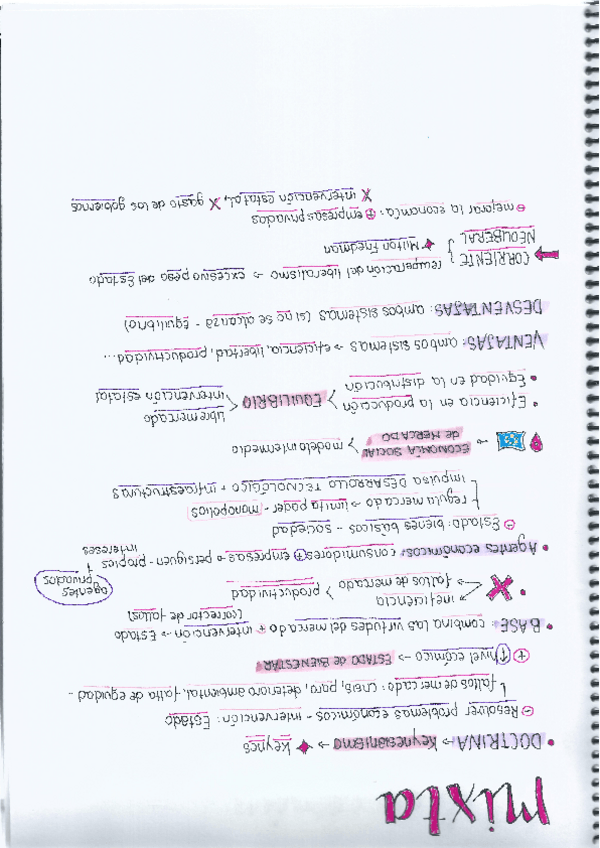 mixta
• DOCTRINA → Keynesianismo → ✦ Keynes
⊖ Resolver problemas económicos - intervención: Estado
↳ fallos de mercado: crisis, paro, deterioro ambiental, falta de equidad -
⊕ ↑ nivel ecómico -> ESTADO de BIENESTAR
• BASE: combina las virtudes del mercado + intervención -> Estado
(corrector de fallos)
• X ineficiencia
fallos de mercado > productividad
• Agentes económicos: consumidores ⊕ empresas → persiguen - propios
intereses
agentes privados
⊖ Estado: bienes básicos - sociedad
regula mercado → limita poder - monopolios
impulsa DESARROLLO TECNOLÓGICO + infraestructuras
→ ECONOMÍA SOCIAL de MERCADO > modelo intermedio
• Eficiencia en la producción
• Equidad en la distribución
> EQUILIBRIO < libre mercado
intervención estatal
VENTAJAS: ambos sistemas → eficiencia, libertad, productividad...
DESVENTAJAS: ambos sistemas (si no se alcanza - equilibrio)
CORRIENTE NEOLIBERAL } recuperación del liberalismo → excesivo peso del Estado
✦ Milton Friedman
⊖ mejorar la economía: ⊕ empresas privadas
X intervención estatal, X gasto de los gobiernos